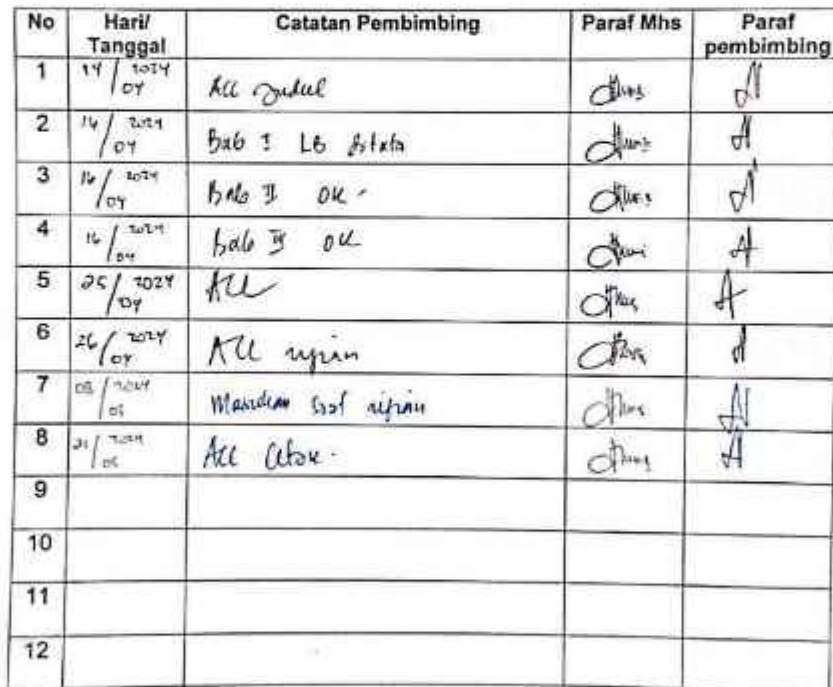 No Hari/ Catatan Pembimbing Paraf Mhs Paraf
Tanggal pembimbing
1 14/04 2024 Acc Judul
2 16/04 2024 Bab I LB
3 16/04 2024 Bab II OK
4 16/04 2024 Bab III OK
5 25/04 2024 Acc
6 26/04 2024 Acc ujian
7 2024 ujian
8 2024 Acc Cetak.
9
10
11
12